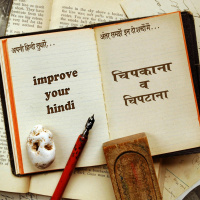 अपनी हिन्दी सुधारें...
improve
your
hindi
अंतर समझें इन शब्दों में...
चिपकाना
व
चिपटाना